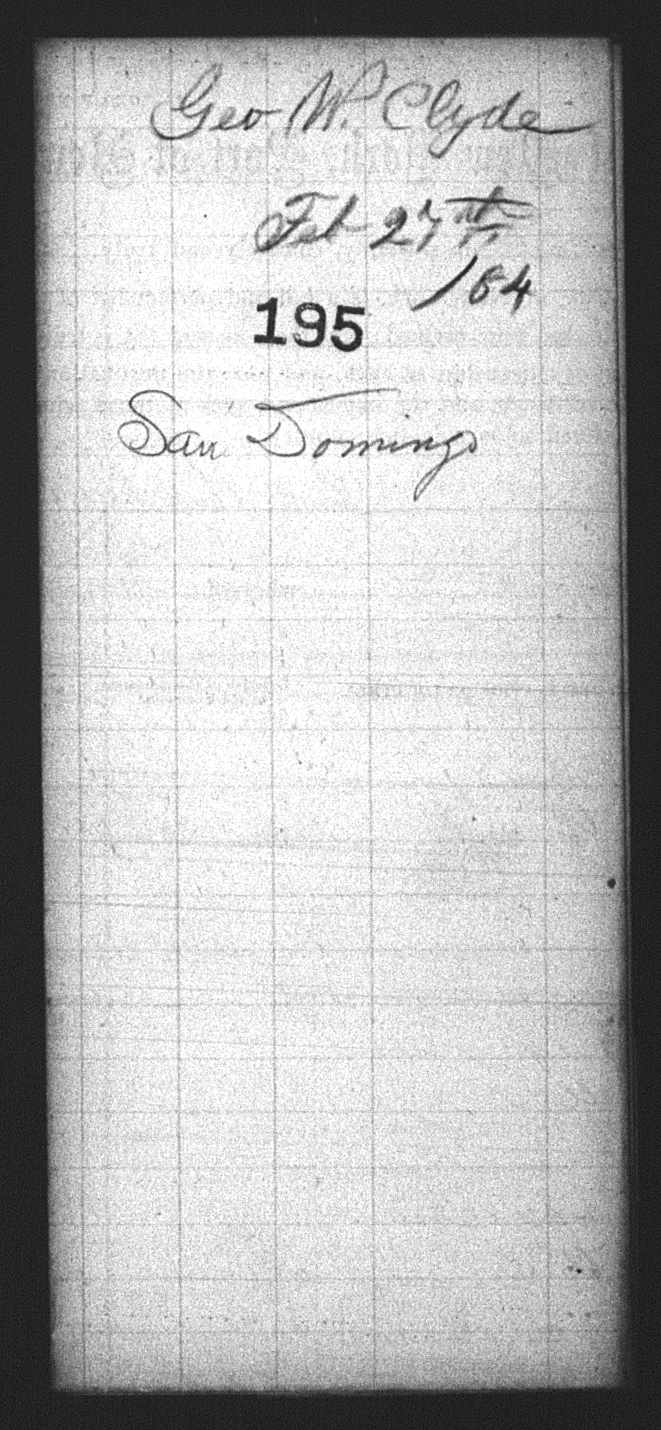 Geo W. Clyde
Feb 27th
/84
195
San Domingo